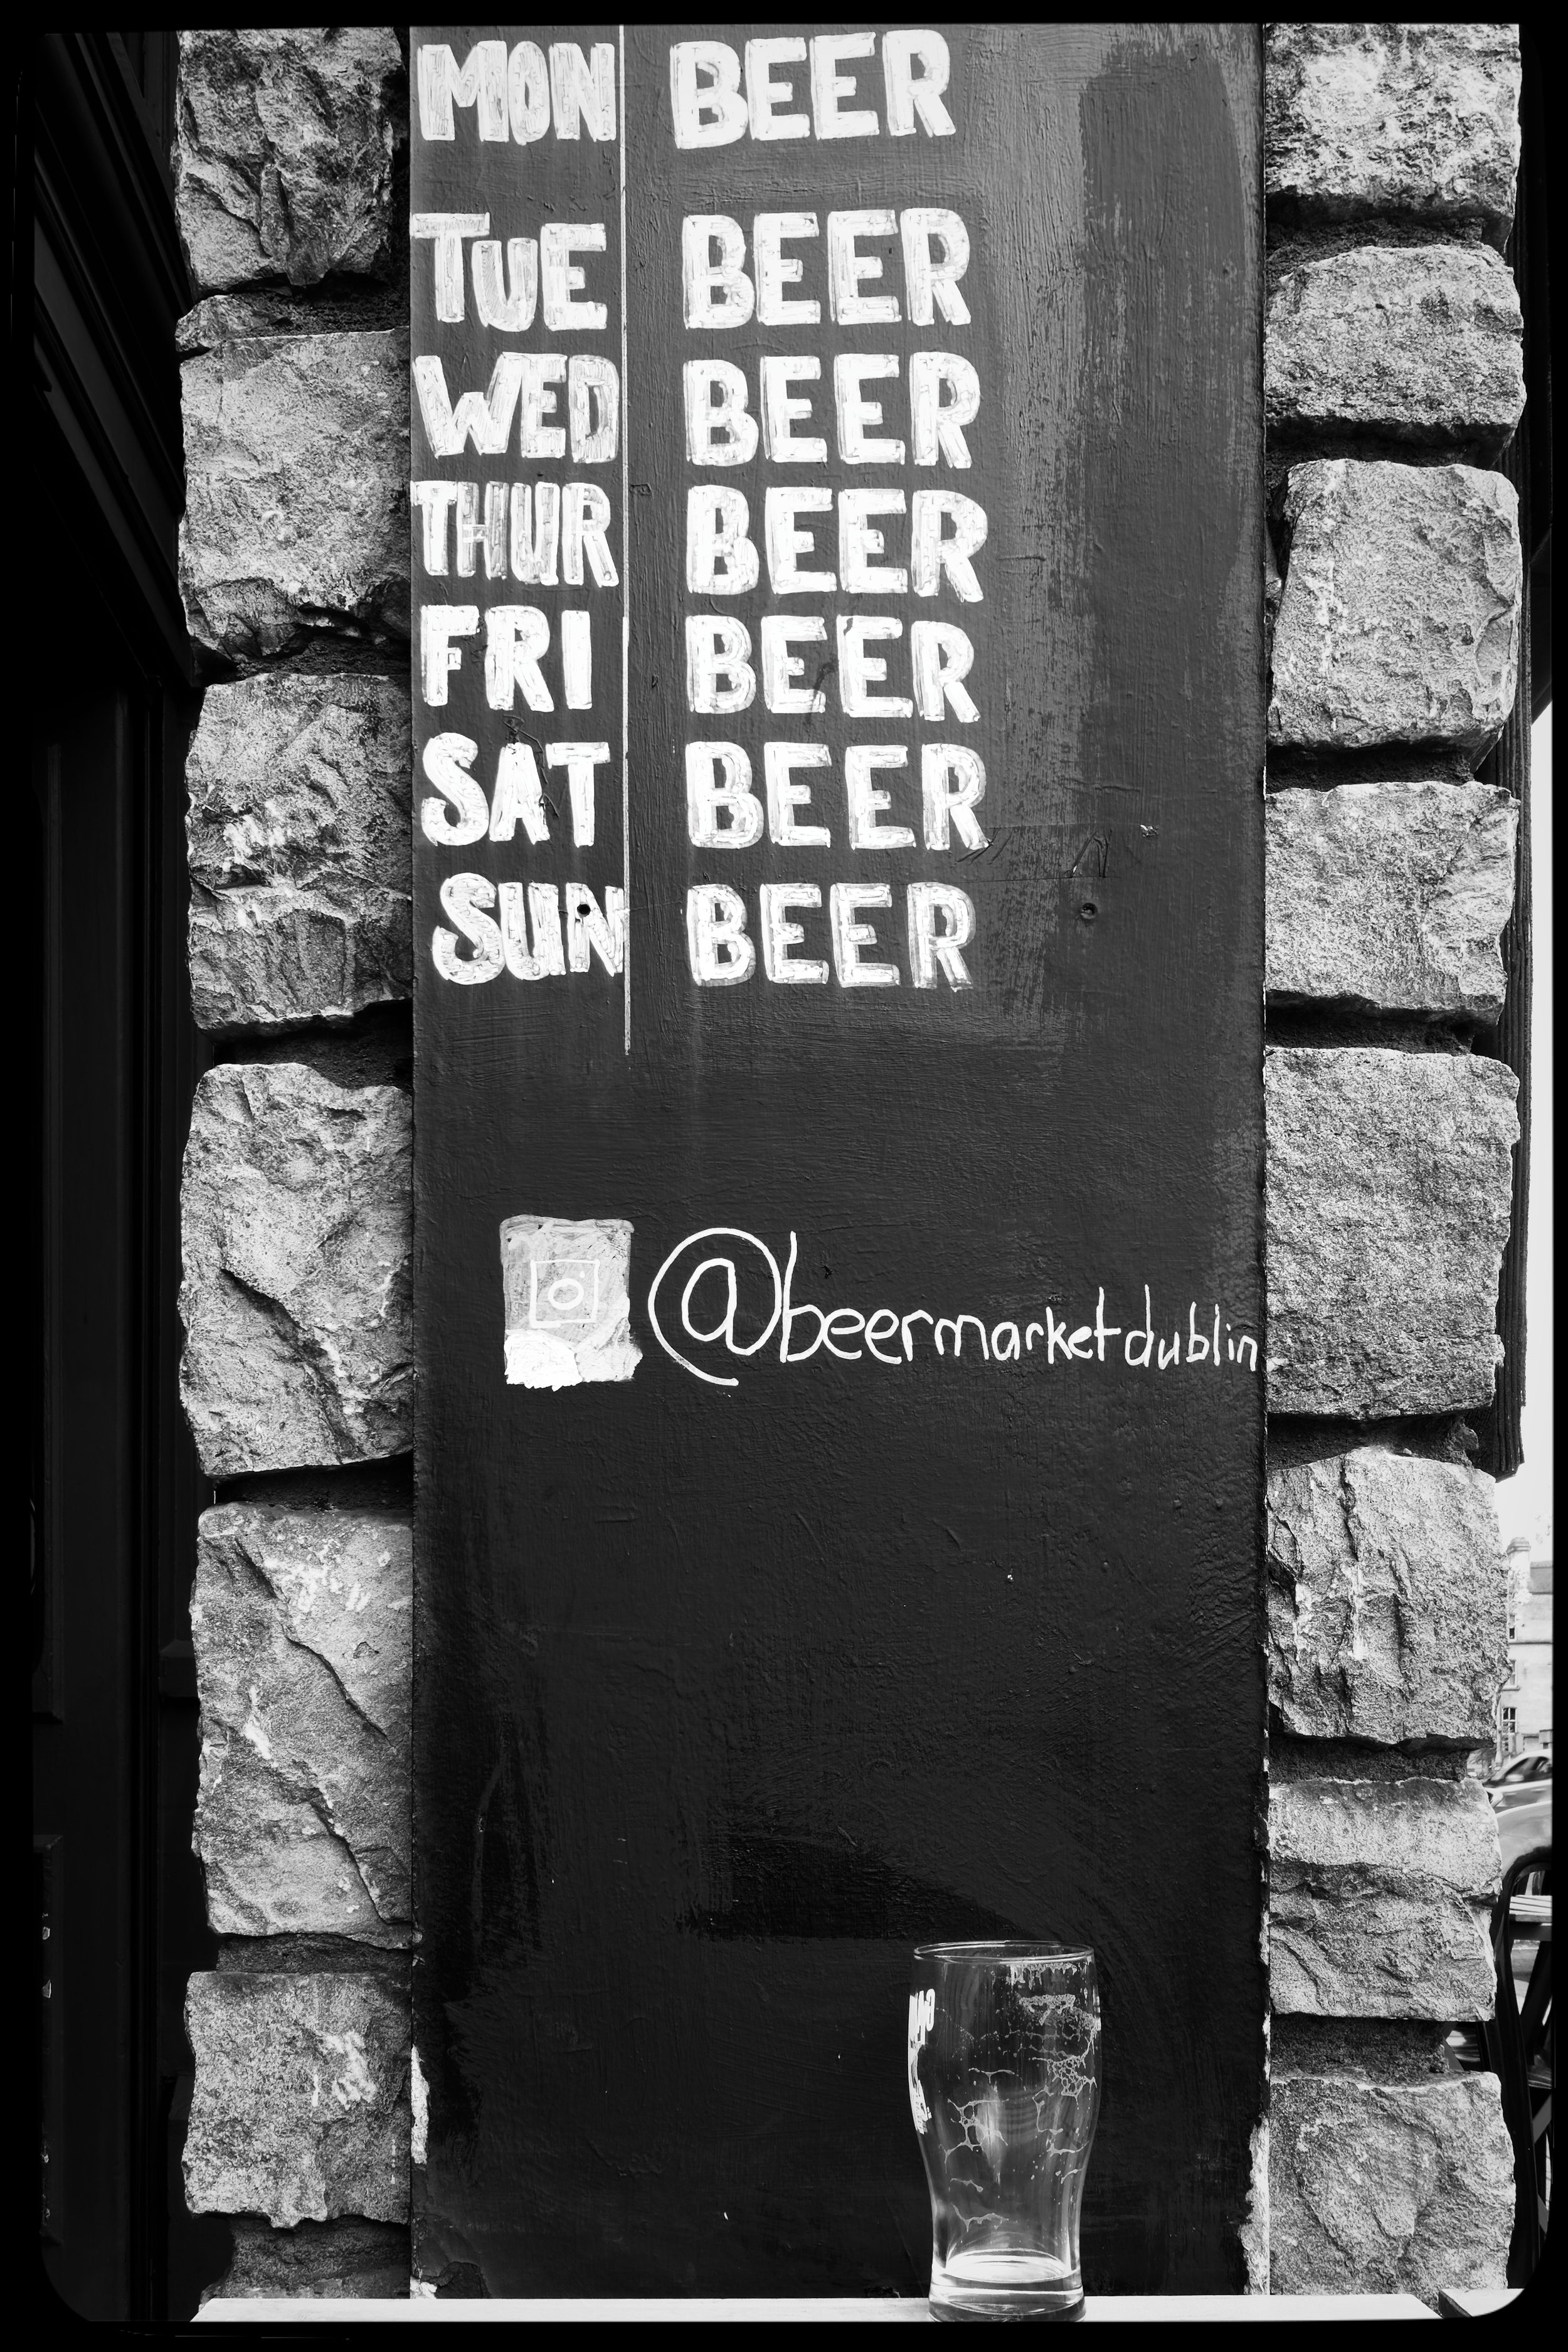 MON BEER
TUE BEER
WED BEER
THUR BEER
FRI BEER
SAT BEER
SUN BEER
@beermarketdublin